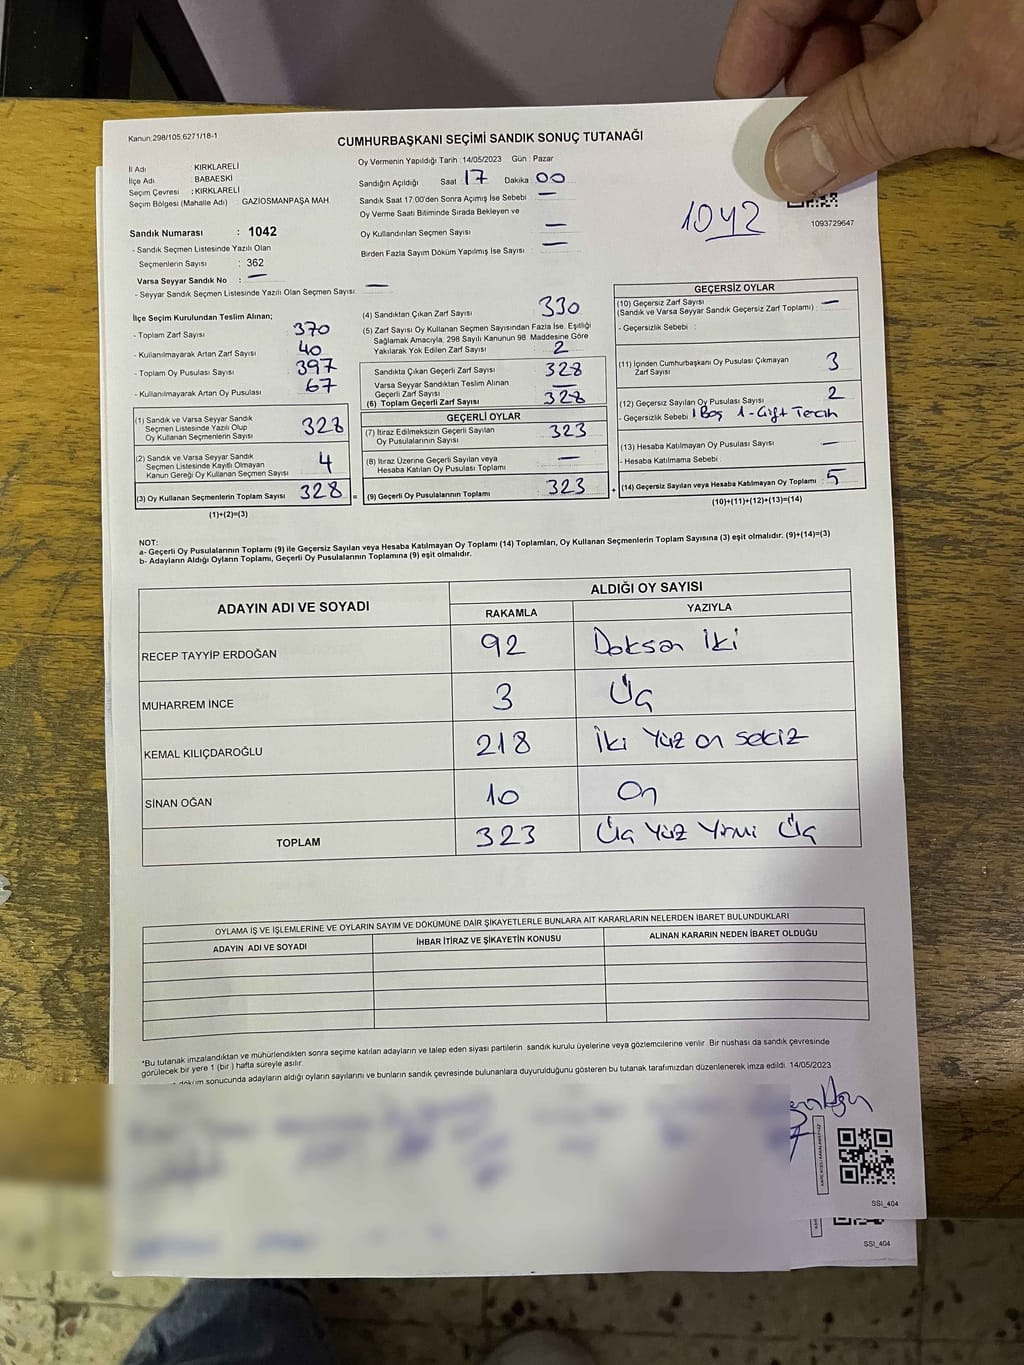 Kanun:298/105,6271/18-1
CUMHURBAŞKANI SEÇİMİ SANDIK SONUÇ TUTANAĞI
İl Adı : KIRKLARELİ
İlçe Adı : BABAESKİ
Seçim Çevresi : KIRKLARELİ
Seçim Bölgesi (Mahalle Adı) : GAZİOSMANPAŞA MAH
Sandık Numarası : 1042
- Sandık Seçmen Listesinde Yazılı Olan
Seçmenlerin Sayısı : 362
Varsa Seyyar Sandık No : —
- Seyyar Sandık Seçmen Listesinde Yazılı Olan Seçmen Sayısı: —
Oy Vermenin Yapıldığı Tarih :14/05/2023 Gün : Pazar
Sandığın Açıldığı Saat 17 Dakika 00
Sandık Saat 17.00'den Sonra Açımış İse Sebebi —
Oy Verme Saati Bitiminde Sırada Bekleyen ve
Oy Kullandırılan Seçmen Sayısı —
Birden Fazla Sayım Döküm Yapılmış İse Sayısı —
1042
1093729647
İlçe Seçim Kurulundan Teslim Alınan;
- Toplam Zarf Sayısı 370
- Kullanılmayarak Artan Zarf Sayısı 40
- Toplam Oy Pusulası Sayısı 397
- Kullanılmayarak Artan Oy Pusulası 67
(1) Sandık ve Varsa Seyyar Sandık
Seçmen Listesinde Yazılı Olup
Oy Kullanan Seçmenlerin Sayısı 328
(2) Sandık ve Varsa Seyyar Sandık
Seçmen Listesinde Kayıtlı Olmayan
Kanun Gereği Oy Kullanan Seçmen Sayısı 4
(3) Oy Kullanan Seçmenlerin Toplam Sayısı 328 =
(1)+(2)=(3)
(4) Sandıktan Çıkan Zarf Sayısı 330
(5) Zarf Sayısı Oy Kullanan Seçmen Sayısından Fazla İse, Eşitliği
Sağlamak Amacıyla, 298 Sayılı Kanunun 98. Maddesine Göre
Yakılarak Yok Edilen Zarf Sayısı 2
Sandıkta Çıkan Geçerli Zarf Sayısı 328
Varsa Seyyar Sandıktan Teslim Alınan
Geçerli Zarf Sayısı —
(6) Toplam Geçerli Zarf Sayısı 328
GEÇERLİ OYLAR
(7) İtiraz Edilmeksizin Geçerli Sayılan
Oy Pusulasının Sayısı 323
(8) İtiraz Üzerine Geçerli Sayılan veya
Hesaba Katılan Oy Pusulası Toplamı —
(9) Geçerli Oy Pusulalarının Toplamı 323 +
GEÇERSİZ OYLAR
(10) Geçersiz Zarf Sayısı
(Sandık ve Varsa Seyyar Sandık Geçersiz Zarf Toplamı) : —
- Geçersizlik Sebebi :
(11) İçinden Cumhurbaşkanı Oy Pusulası Çıkmayan
Zarf Sayısı 3
(12) Geçersiz Sayılan Oy Pusulası Sayısı 2
- Geçersizlik Sebebi 1 Boş 1-Çift Tercih
(13) Hesaba Katılmayan Oy Pusulası Sayısı —
- Hesaba Katılmama Sebebi :
(14) Geçersiz Sayılan veya Hesaba Katılmayan Oy Toplamı 5
(10)+(11)+(12)+(13)=(14)
NOT:
a- Geçerli Oy Pusulalarının Toplamı (9) ile Geçersiz Sayılan veya Hesaba Katılmayan Oy Toplamı (14) Toplamları, Oy Kullanan Seçmenlerin Toplam Sayısına (3) eşit olmalıdır. (9)+(14)=(3)
b- Adayların Aldığı Oyların Toplamı, Geçerli Oy Pusulalarının Toplamına (9) eşit olmalıdır.
ADAYIN ADI VE SOYADI
ALDIĞI OY SAYISI
RAKAMLA YAZIYLA
RECEP TAYYİP ERDOĞAN 92 Doksan İki
MUHARREM İNCE 3 Üç
KEMAL KILIÇDAROĞLU 218 İki Yüz On Sekiz
SİNAN OĞAN 10 On
TOPLAM 323 Üç Yüz Yirmi Üç
OYLAMA İŞ VE İŞLEMLERİNE VE OYLARIN SAYIM VE DÖKÜMÜNE DAİR ŞİKAYETLERLE BUNLARA AİT KARARLARIN NELERDEN İBARET BULUNDUKLARI
ADAYIN ADI VE SOYADI İHBAR İTİRAZ VE ŞİKAYETİN KONUSU ALINAN KARARIN NEDEN İBARET OLDUĞU
*Bu tutanak imzalandıktan ve mühürlendikten sonra seçime katılan adayların ve talep eden siyasi partilerin sandık kurulu üyelerine veya gözlemcilerine verilir. Bir nüshası da sandık çevresinde
görülecek bir yere 1 (bir ) hafta süreyle asılır.
döküm sonucunda adayların aldığı oyların sayılarını ve bunların sandık çevresinde bulunanlara duyurulduğunu gösteren bu tutanak tarafımızdan düzenlenerek imza edildi. 14/05/2023
SSI_404
SSI_404